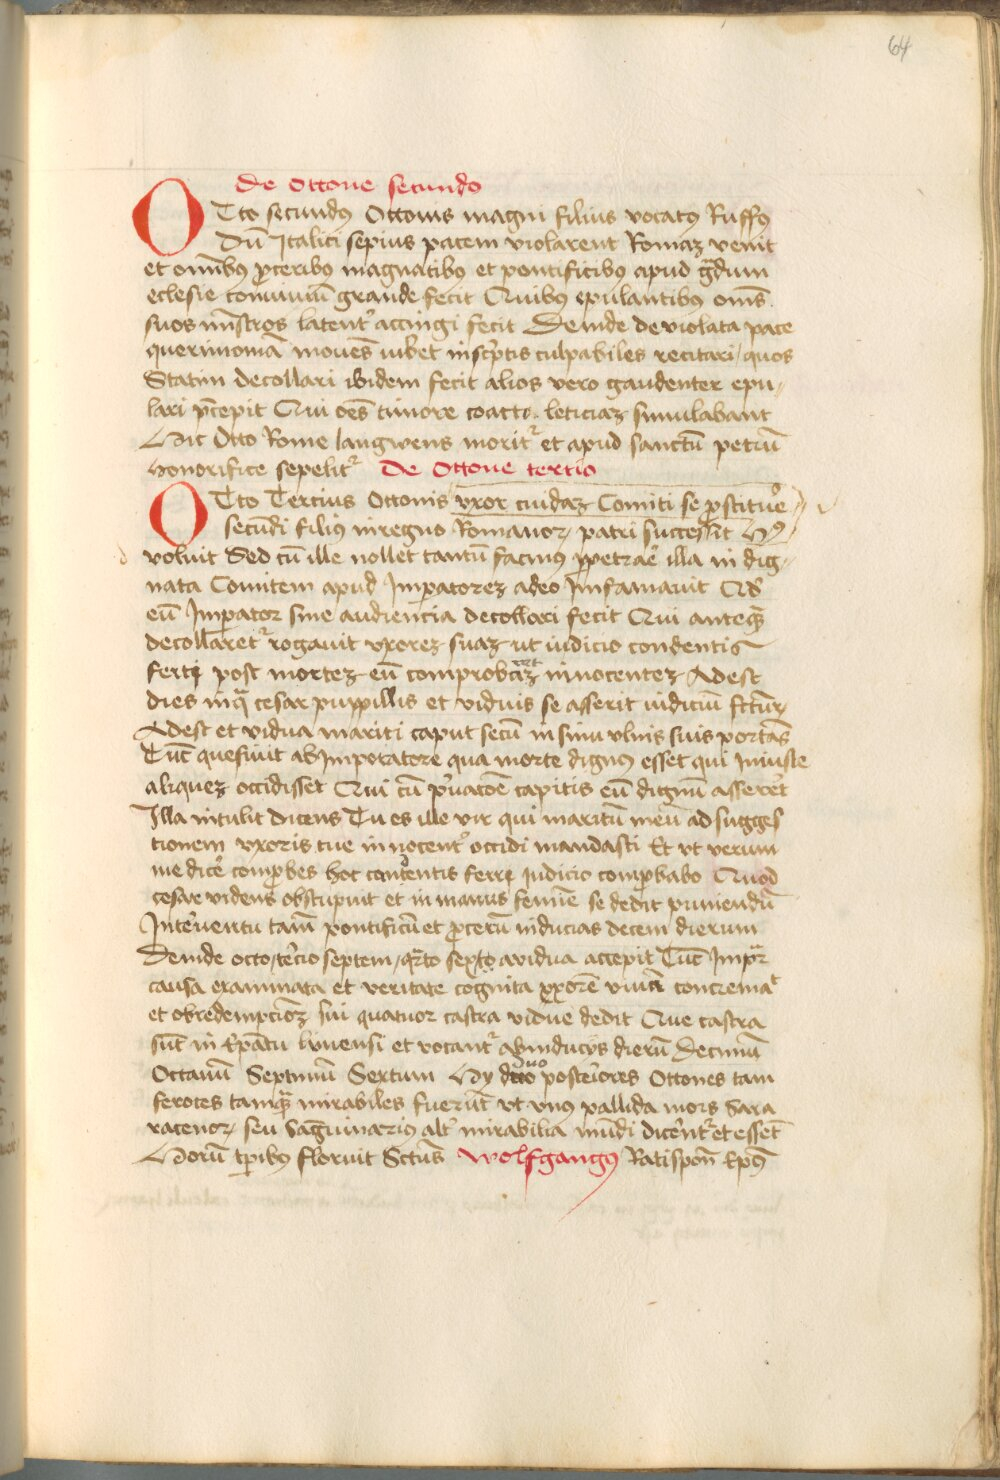 64
De Ottone secundo
OTto secundꝰ Ottonis magni filius vocatꝰ Ruffꝰ
Dū Italici sepius pacem violarent Romaꝫ venit
et om̄ibꝰ ꝓceribꝰ magnatibꝰ et pontificibꝰ apud g̃dum
eclesie conuiuiū grande fecit Quibꝰ epulantibꝰ om̄s
suos mīstros latent᷑ accingi fecit Deinde de violata pace
querimoniā mouēs iubet inscͥptis culpabiles recitari / quos
Statim decollari ibidem fecit alios vero gaudenter epu⸗
lari p̄cepit Qui oēs timore coacto leticiaꝫ simulabant
Hic Otto Rome langwens morit᷑ et apud sanctū petrū
honorifice sepelit᷑ De Ottone tertio
OTto Tercius Ottonis vxor cuidaꝫ Comiti se ꝓstitue᷑
secūdi filiꝰ in regno Romanoꝝ patri successit Hꝰ
voluit Sed cū ille nollet tantū facinꝰ ꝑpetrar̄e illa in dig⸗
nata Comitem apud Imꝑatoreꝫ adeo Infamauit Qd̄
eū Imꝑator sine audiencia decollari fecit Qui anteqᷓ
decollaret᷑ rogauit vxoreꝫ suaꝫ ut iudicio condentis
ferri post morteꝫ eū comprobaꝫet innocenteꝫ Adest
dies inqͣ cesar puppillis et viduis se asserit iudiciū fctūꝝ
Adest et vidua mariti caput secū in sinu vlnis suis portās
Tūc quesiuit ab Imperatore qua morte dignꝰ esset qui Iniuste
aliqueꝫ occidisset Qui cū pͥuacōe capitis eū dignū asser᷑et
Illa intulit dicens Tu es ille vir qui maritū meū ad sugges
tionem vxoris tue innocent᷑ occidi mandasti Et vt verum
me dice᷑ comꝓbes hoc can᷑entis ferri Iudicio comꝓbabo Quod
cesar videns obstupuit et in manus femīe se dedit puniendū
Int᷑uentu tam̄ pontificū et ꝓcerū inducias decem dierum
Deinde octo / t᷑cio septem / qͣrto sexto a vidua accepit Tūc Impͣr
causa examinata et veritate cognita vxorē viuā concremat
et ob redempcōꝫ sui quatuor castra vidue dedit Que castra
sūt in Ep̄atu lunensi et vocant᷑ ab inducijs dierū Decimū
Octauū Septimū Sextum Hy duo posteriores Ottones tam
feroces tamqᷓ mirabiles fuerūt vt vnꝰ pallida mors Sara
racenoꝝ seu Sāguinariꝰ alt᷑ mirabilia mūdi dic᷑ent᷑ et essēt
Horū tꝑibꝰ floruit Sctūs Wolfgangꝰ Ratispon̄ Ep̄s